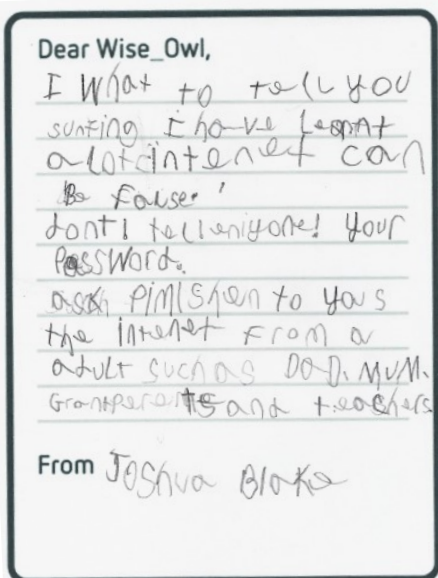 Dear Wise_Owl,
I What to tell you
sunting I have leant
a lot intenet can
Be Fause.
dont! tell eniyone! your
PassWord.
ask Pimishen to yous
the intenet From a
adult such as DaD. MuM.
Grantperents and teachers
From Joshua Blake